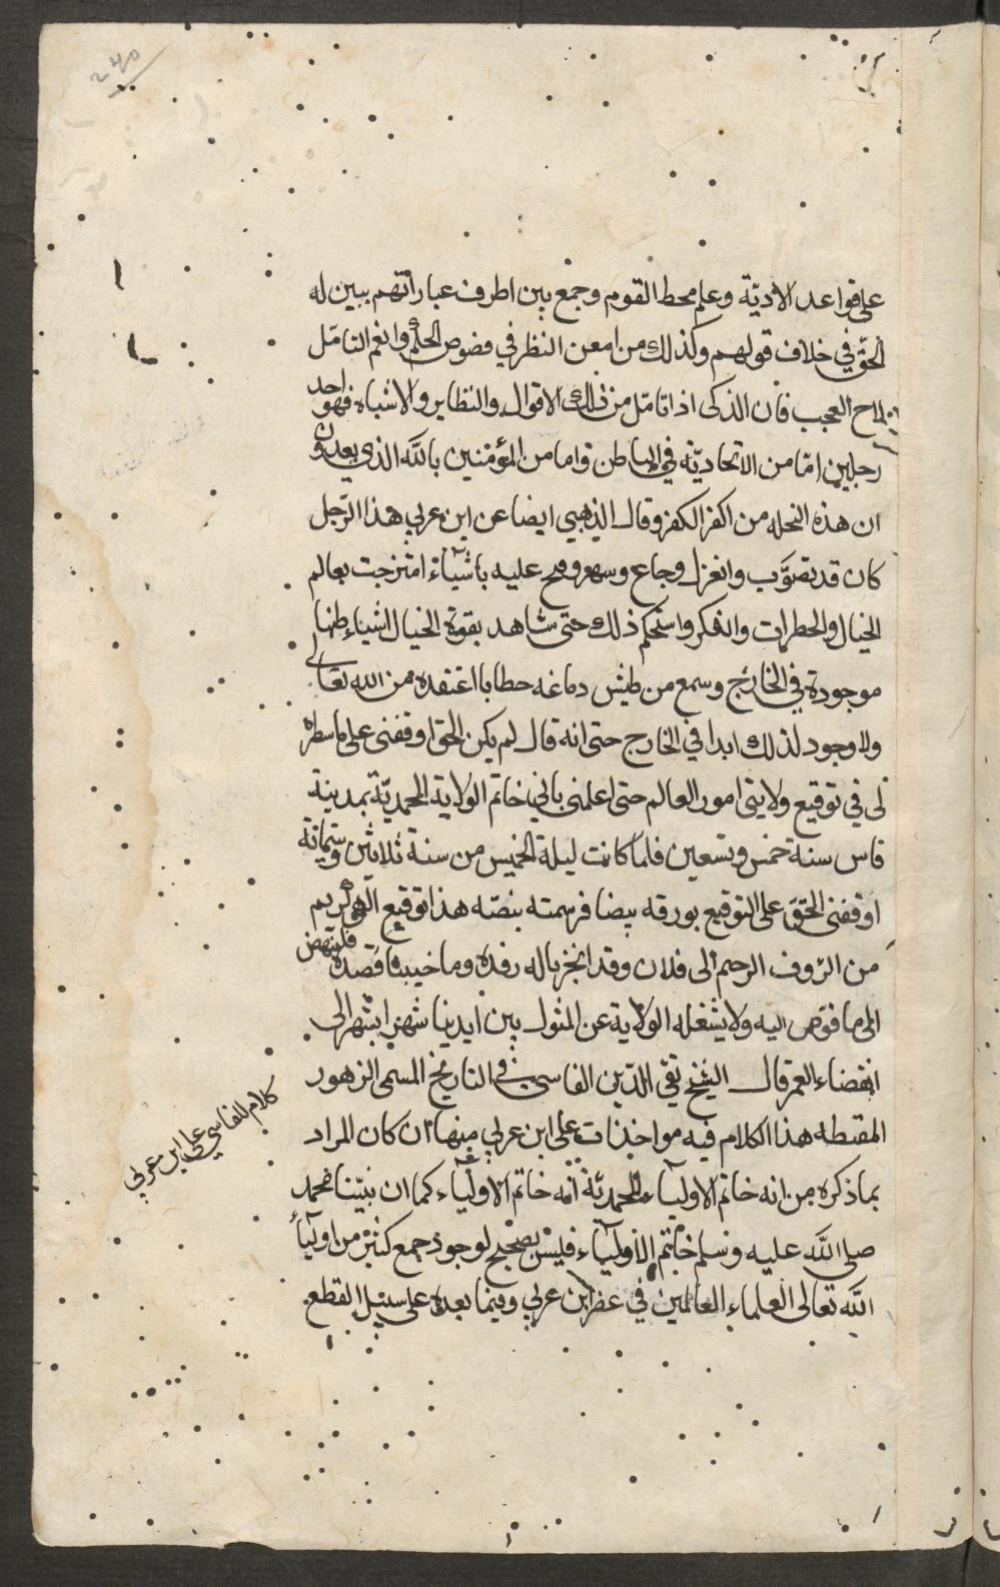 على قواعد الادبية وعلم محط القوم وجمع بين اطرف عباراتهم يبين له
الحق في خلاف قولهم وكذلك من امعن النظر في فصوص الحكم وانعم التامل
لاح العجب فان الذكى اذا تامل من ذلك الاقوال والنظاير والاشباه فهو احد
رجلين امّا من الاتحاديّة في الباطن واما من المؤمنين بالله الذي يعدون
ان هذه النحله من اكفر الكفر وقال الذهبي ايضا عن ابن عربي هذا الرّجل
كان قد تصوّب وانعزل وجاع وسهر وفتح عليه باشيآء امتزجت بعالم
الخيال والخطرات والفكر واستحكم ذلك حتى شاهد بقوة الخيال اشياء ظنها
موجودة في الخارج وسمع من طيش دماغه خطابا اعتقده من الله تعالى
ولا وجود لذلك ابدا في الخارج حتى انه قال لم يكن الحق اوقفنى على ما سطره
لى في توقيع ولايتى امور العالم حتى اعلمنى بانى خاتم الولاية المحمديّة بمدينة
فاس سنة خمس وتسعين فلما كانت ليلة الخميس من سنة ثلاثين وستماىة
اوقفنى الحق على التوقيع بورقه بيضا فرسمته بنصّه هذا توقيع الهي كريم
من الرّوف الرحيم الى فلان وقد اجزنا له رفده وما خيبنا قصده فلينهض
الى ما فوّض اليه ولا يشغله الولاية عن المثول بين ايدينا شهر ابشهر الى
انقضاء العمر قال الشيخ تقي الدّين الفاسي في التاريخ المسمى الزهور
المقتطه هذا الكلام فيه مواخذات على ابن عربي منها ان كان المراد
بما ذكره من انه خاتم الاولياء المحمديّة انه خاتم الاولياء كما ان نبيّنا محمد
صلى الله عليه وسلم خاتم الاولياء فليس بصحيح لوجود جمع كثير من اوليآء
الله تعالى العلماء العالمين في عصر ابن عربي وفيما بعده على سبيل القطع
كلام للفاسي على ابن عربي